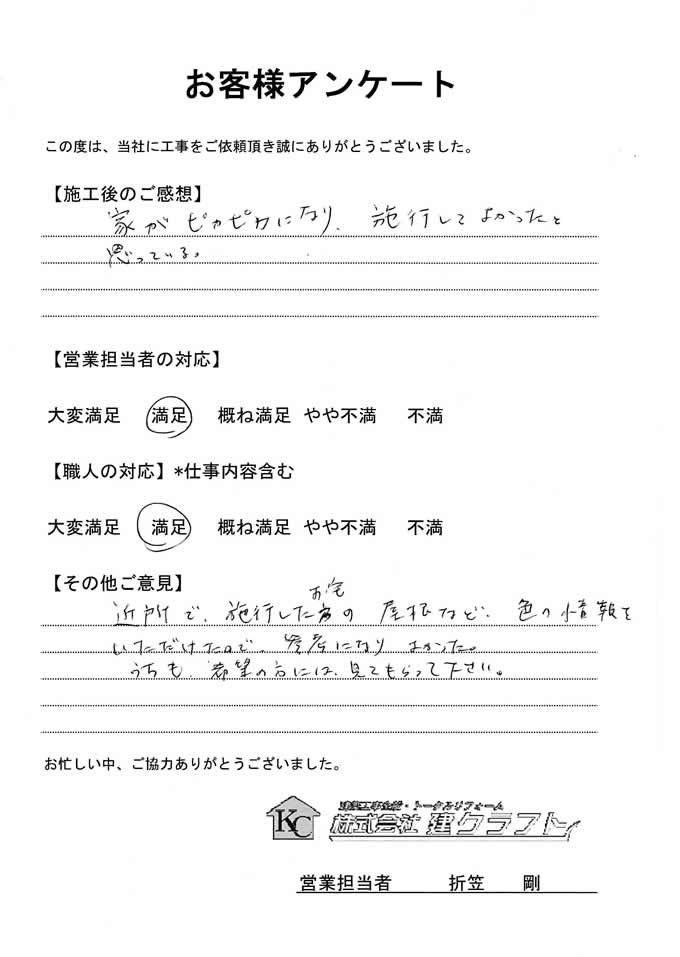 お客様アンケート
この度は、当社に工事をご依頼頂き誠にありがとうございました。
【施工後のご感想】
家がピカピカになり、施行してよかったと
思っている。
【営業担当者の対応】
大変満足 満足 概ね満足 やや不満 不満
【職人の対応】*仕事内容含む
大変満足 満足 概ね満足 やや不満 不満
【その他ご意見】
お宅
近所で、施行した の 屋根など、色の情報を
いただけたので、参考になり よかった。
うちも、希望の方には、見てもらって下さい。
お忙しい中、ご協力ありがとうございました。
KC
建築工事全般・トータルリフォーム
株式会社 建クラフト
営業担当者 折笠 剛